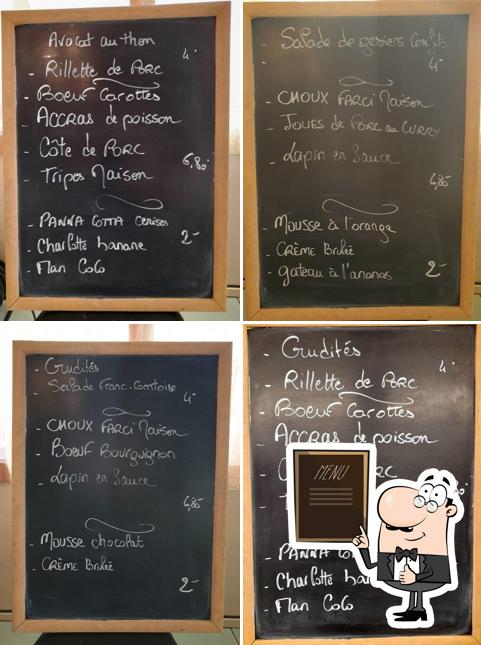 Avocat au thon
4.
- Rillette de Porc
- Boeuf Carottes
- Accras de poisson
- Côte de Porc
6,80
- Tripes Maison
- PANNA COTTA Cerises
- Charlotte banane
2-
- Flan Coco
- Salade de gesiers Confits
-
4-
- CHOUX FARCI Maison
- Joues de Porc au CURRY
- Lapin en Sauce
6,80
- Mousse à l'orange
- CRÈME Brulée
- gateau à l'ananas 2-
- Crudités
- Salade Franc-Comtoise
4-
- CHOUX FARCI Maison
- Boeuf Bourguignon
- Lapin en Sauce
6,80
- Mousse chocolat
- CRÈME Brulée
2-
- Crudités
4.
- Rillette de Porc
- Boeuf Carottes
- Accras de poisson
MENU
- PANNA CO
- Charlotte ba
- Flan Coco